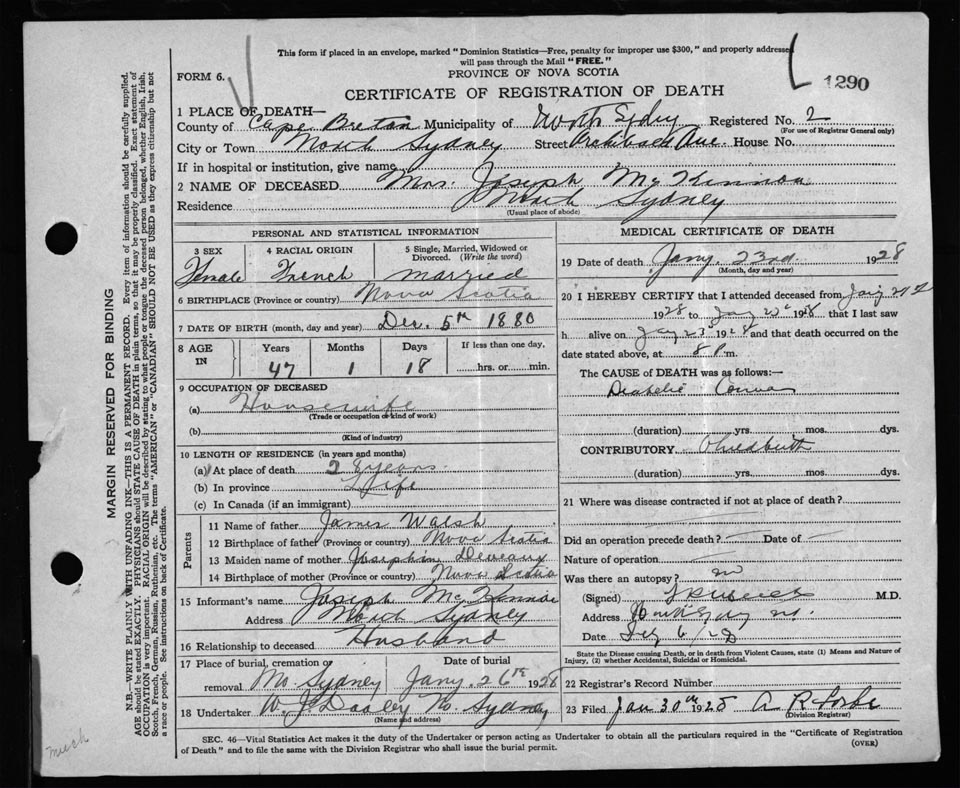 This form if placed in an envelope, marked "Dominion Statistics—Free, penalty for improper use $300," and properly addressed
will pass through the Mail "FREE."
FORM 6.
PROVINCE OF NOVA SCOTIA
1290
CERTIFICATE OF REGISTRATION OF DEATH
1 PLACE OF DEATH—
County of Cape Breton Municipality of North Sydney Registered No. 2
(For use of Registrar General only)
City or Town North Sydney Street Archibald Ave. House No.
If in hospital or institution, give name
2 NAME OF DECEASED Mrs. Joseph McKinnon
Residence North Sydney
(Usual place of abode)
PERSONAL AND STATISTICAL INFORMATION
3 SEX 4 RACIAL ORIGIN 5 Single, Married, Widowed or Divorced. (Write the word)
Female French Married
6 BIRTHPLACE (Province or country) Nova Scotia
7 DATE OF BIRTH (month, day and year) Dec. 5th 1880
8 AGE IN Years Months Days If less than one day,
47 1 18 hrs. or min.
9 OCCUPATION OF DECEASED
(a) Housewife
(Trade or occupation or kind of work)
(b)
(Kind of industry)
10 LENGTH OF RESIDENCE (in years and months)
(a) At place of death 2 years.
(b) In province Life
(c) In Canada (if an immigrant)
Parents
11 Name of father James Walsh
12 Birthplace of father (Province or country) Nova Scotia
13 Maiden name of mother Josephin Deveaux
14 Birthplace of mother (Province or country) Nova Scotia
15 Informant's name Joseph McKinnon
Address North Sydney
16 Relationship to deceased Husband
17 Place of burial, cremation or removal Date of burial
No. Sydney Jany. 26th 1928
18 Undertaker W. J. Dooley No. Sydney
(Name and address)
MEDICAL CERTIFICATE OF DEATH
19 Date of death Jany. 23rd. 1928
(Month, day and year)
20 I HEREBY CERTIFY that I attended deceased from Jany
1928 to Jany 1928 that I last saw
h alive on Jany 23rd 1928 and that death occurred on the
date stated above, at 8 P.m.
The CAUSE OF DEATH was as follows:—
Diabetic Coma
(duration) yrs. mos. dys.
CONTRIBUTORY Childbirth
(duration) yrs. mos. dys.
21 Where was disease contracted if not at place of death?
Did an operation precede death? Date of
Nature of operation
Was there an autopsy? no
(Signed) M.D.
Address
Date 6/28
State the Disease causing Death, or in death from Violent Causes, state (1) Means and Nature of
Injury, (2) whether Accidental, Suicidal or Homicidal.
22 Registrar's Record Number
23 Filed Jan 30th 1928 A R Forbes
(Division Registrar)
SEC. 46—Vital Statistics Act makes it the duty of the Undertaker or person acting as Undertaker to obtain all the particulars required in the "Certificate of Registration
of Death" and to file the same with the Division Registrar who shall issue the burial permit.
(OVER)
MARGIN RESERVED FOR BINDING
N.B.—WRITE PLAINLY WITH UNFADING INK—THIS IS A PERMANENT RECORD. Every item of information should be carefully supplied.
AGE should be stated EXACTLY. PHYSICIANS should STATE CAUSE OF DEATH in plain terms, so that it may be properly classified. Exact statement of
OCCUPATION is very important. RACIAL ORIGIN will be described by stating to what people or tongue the deceased person belonged, whether English, Irish,
Scotch, French, German, Russian, Ruthenian, etc. The terms "AMERICAN" or "CANADIAN" SHOULD NOT BE USED as they express citizenship but not
a race or people. See instructions on back of Certificate.